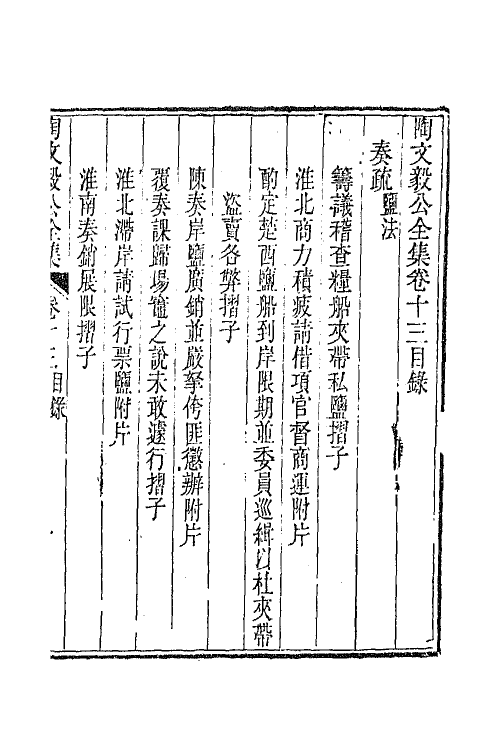 陶文毅公全集卷十三目錄
奏疏 鹽法
籌議稽查糧船夾帶私鹽摺子
淮北商力積疲請借項官督商運附片
酌定楚西鹽船到岸限期並委員巡緝以杜夾帶
盜賣各弊摺子
陳奏岸鹽廣銷並嚴拏侉匪懲辦附片
覆奏課歸場竈之說未敢遽行摺子
淮北滯岸請試行票鹽附片
淮南奏銷展限摺子
陶文毅公全集 卷十三目錄